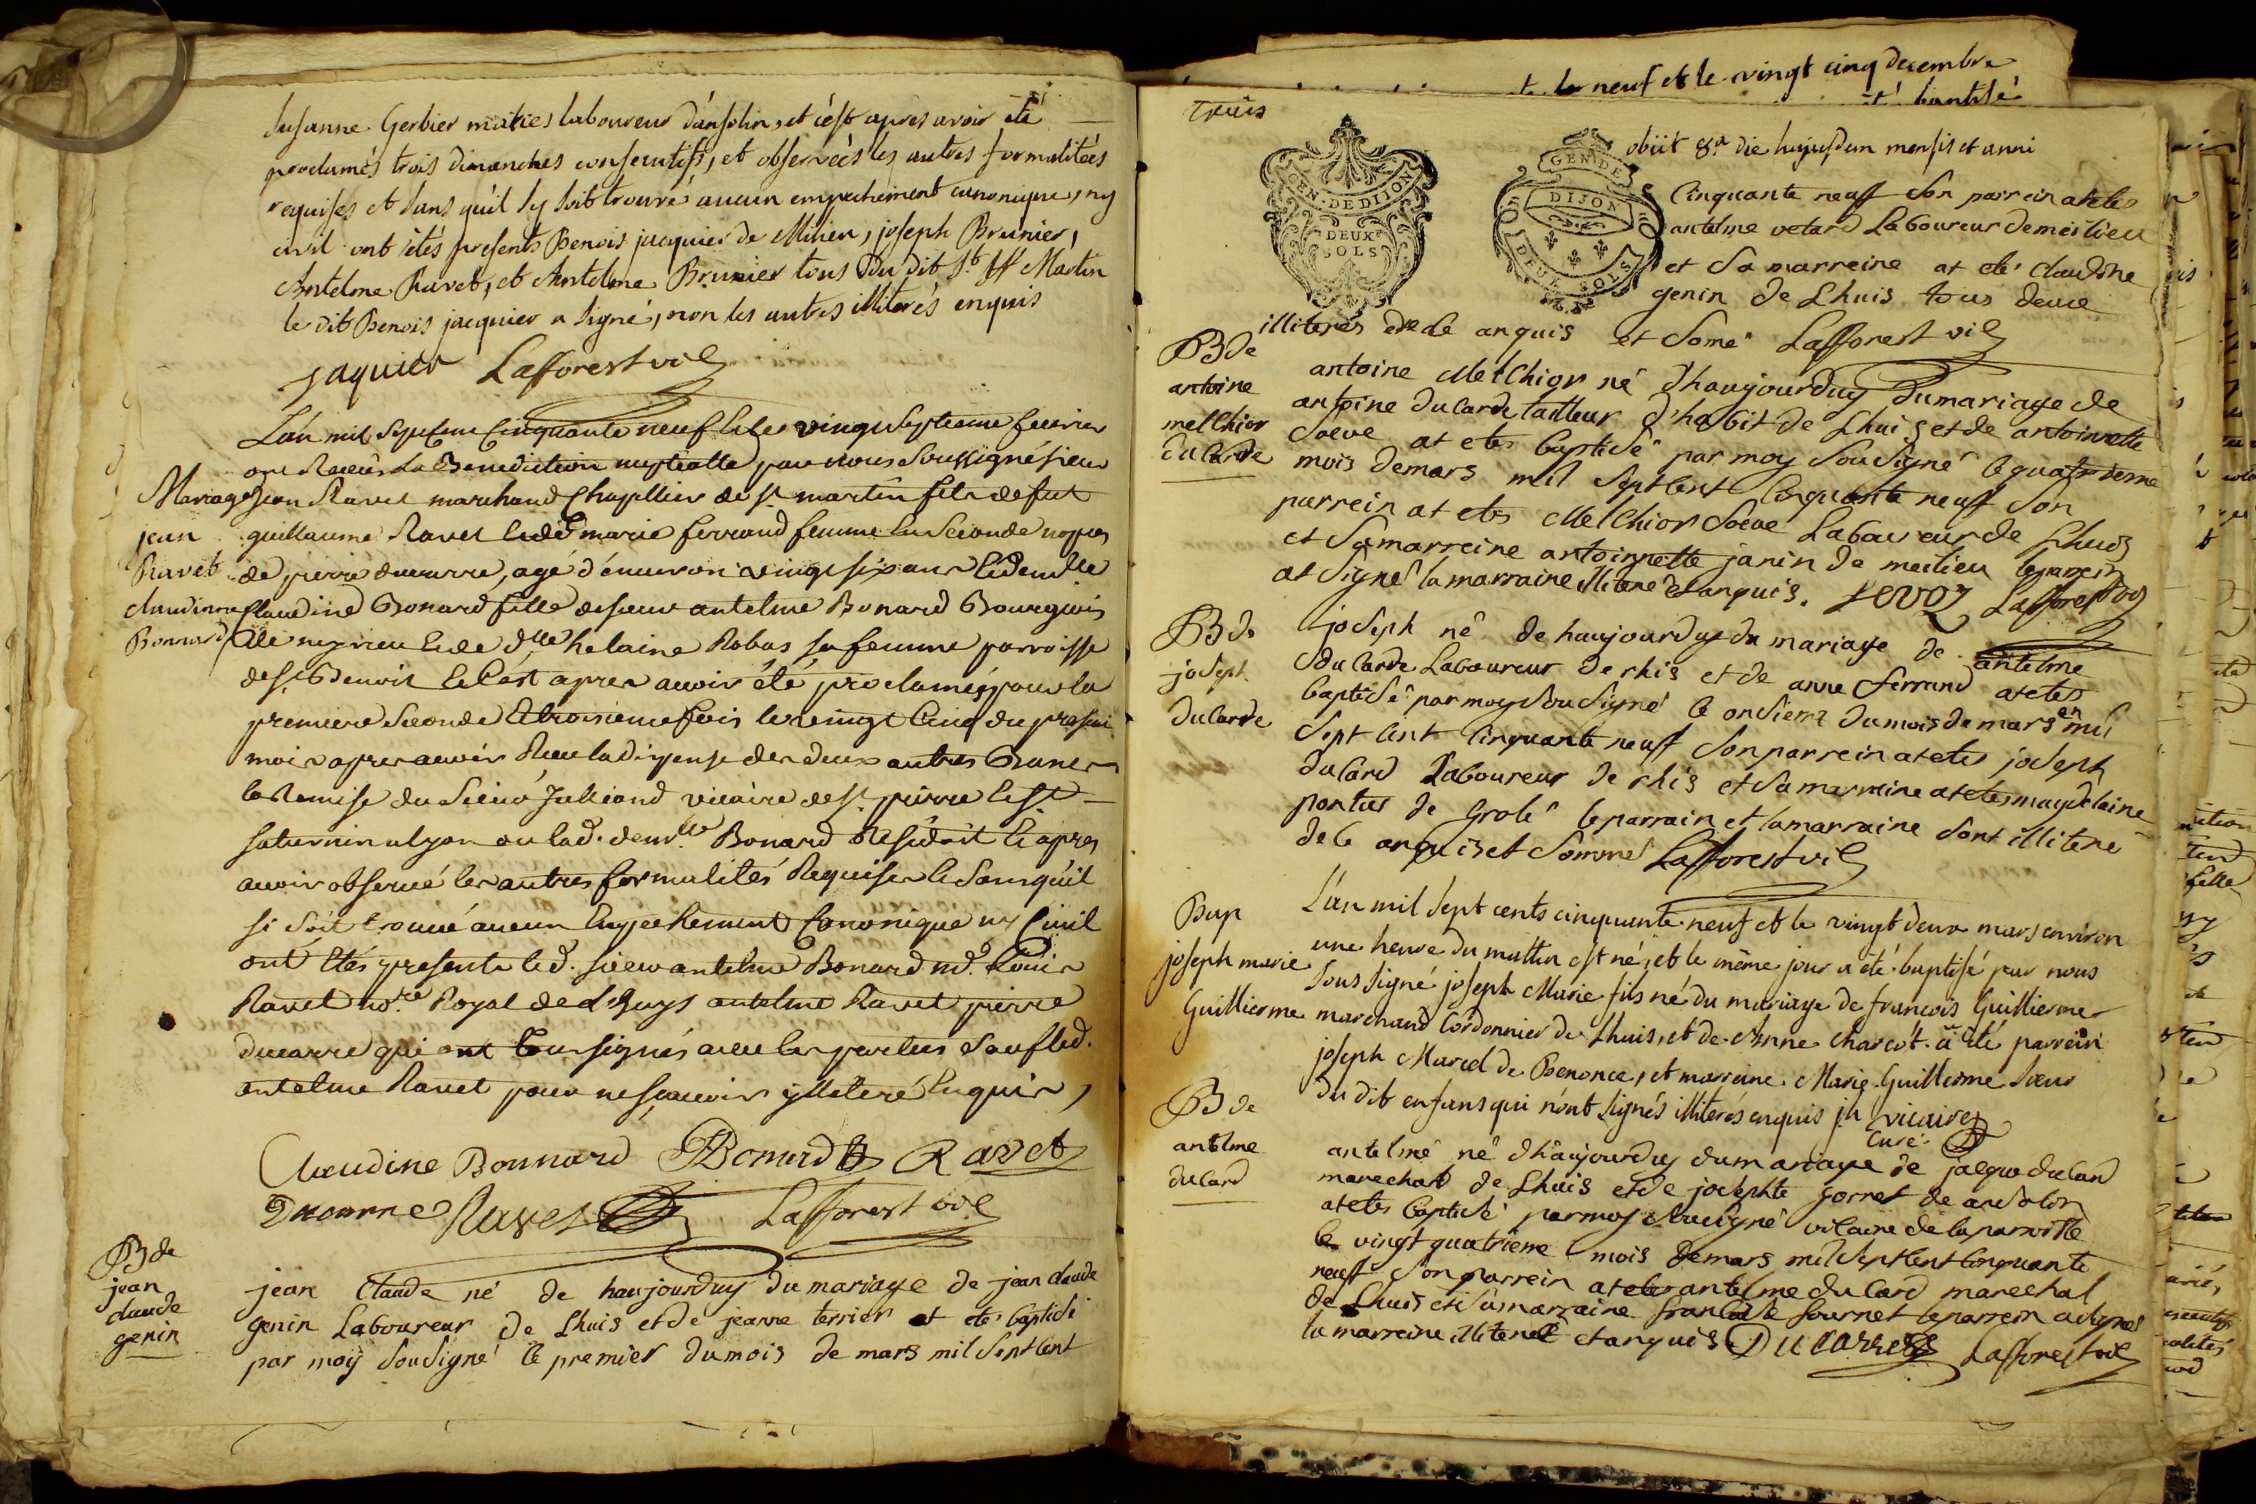 Susanne Gerbier mariés laboureur d'ansolin, et c'est apres avoir eté
proclamés trois dimanches consecutifs, et observées les autres formalitées
requises et sans qu'il s'y soit trouvé aucun empechement canonique, ny
civil ont étés presents Benois jacquier de Millieu, joseph Brunier,
Antelme Ravet, et Antelme Brunier tous du dit St Martin
le dit Benois jacquier a signé, non les autres illiterés enquis
jaquier Lafforest vic
L'an mil sept cent cinquante neuf et le vingt septieme fevrier
ont Receus La Benediction nuptialle par nous Soussigné sieur
Mariage Jean Ravet marchand Chapellier de st martin fils de feu
jean guillaume Ravet et de marie ferrand femme en seconde nopces
Ravet de pierre ducarre, agé d'environ vingt six ans et demlle
claudinne Claudine Bonard fille de sieur antelme Bonard Bourgeois
Bonnard de et de dlle helaine Robas sa femme parroisse
de st Benoit et c'est apres avoir été proclamés pour la
premiere seconde et troisieme fois le vingt cinq du present
mois apres avoir Receu la dispense des deux autres Banes
la Remise du Sieur Julliand vicaire de st pierre et st
saturnin a lyon ou lad. demlle Bonard Residoit et apres
avoir observé les autres formalités Requises et sans qu'il
si soit trouvé aucun Empechement Canonique ny Civil
ont Etés presents led. sieur antelme Bonard md. Louis
Ravet nore Royal de L'huys antelme Ravet pierre
ducarre qui ont tous signés avec les parties sauf led.
antelme Ravet pour ne sçavoir illiteré Enquis,
Claudine Bonnard Bonard Ravet
Ducarre Ravet Lafforest vic
B de
jean
claude
genin
jean Claude né de haujourduy du mariage de jean claude
genin Laboureur de Lhuis et de jeanne terrier at etes baptisé
par moÿ Sousigné le premier du mois de mars mil Sept cent
le neuf et le vingt cinq decembre
trois
GEN. DE DIJON
DEUX
SOLS
GEN. DE
DIJON
DEUX SOLS
obiit 8a die hujusdem mensis et anni
Cinquante neuff Son parrein at etes
antelme vetard Laboureur de meilieu
et Sa marreine at eté claudine
genin de Lhuis tous deux
illiteres de ce anquis et Somé Lafforest vic
B de
antoine
melchior
duCarde
antoine MelChior né dhaujourduy du mariage de
antoine duCarde tailleur d'habit de Lhuis et de antoinette
Soeve at etes baptisé par moy Sousigné le quatrieme
mois de mars mil Sept Cent Cinquante neuff Son
parrein at etes MelChior Soeve Laboureur de Lhuis
et Sa marreine antoinnette janin de meilieu le parrein
at signé la marraine illiteré et anquis. Lafforest vic
B de
josept
duCarde
joseph né de haujourduy du mariage de antelme
duCarde Laboureur de rhis et de anne ferrand at etes
baptisé par moy Sousigné le onsieme du mois de mars en mil
Sept Cent Cinquante neuff Son parrein at etes joseph
duCard Laboureur de rhis et Sa marraine at etes magdelaine
pontus de Grolé le parrain et la marraine Sont illiteré
de Ce anquis et Sommé Lafforest vic
Bap
joseph marie
Guillierme
L'an mil sept cents cinquante neuf et le vingt deux mars environ
une heure du mattin est né, et le même jour a été baptisé par nous
soussigné joseph Marie fils né du mariage de francois Guillierme
marchand Cordonnier de Lhuis, et de Anne Charcot. a Eté parrein
joseph Marcel de Benonce, et marreine Marie Guillierme soeur
du dit enfans qui n'ont signés illiterés enquis vicaire
Curé
B de
antelme
duCard
antelme né dhaujourduy du mariage de jacque duCard
marechat de Lhuis et de josephte gorret de ansolin
at etes baptisé par moy Sousigné viCaire de la paroisse
le vingt quatrieme mois de mars mil Sept Cent Cinquante
neuff Son parrein at etes antelme du Card marechal
de Lhuis et Sa marraine francoise fournet le parrein a signé
la marreine illiteré et anquis Ducarre Lafforest vic